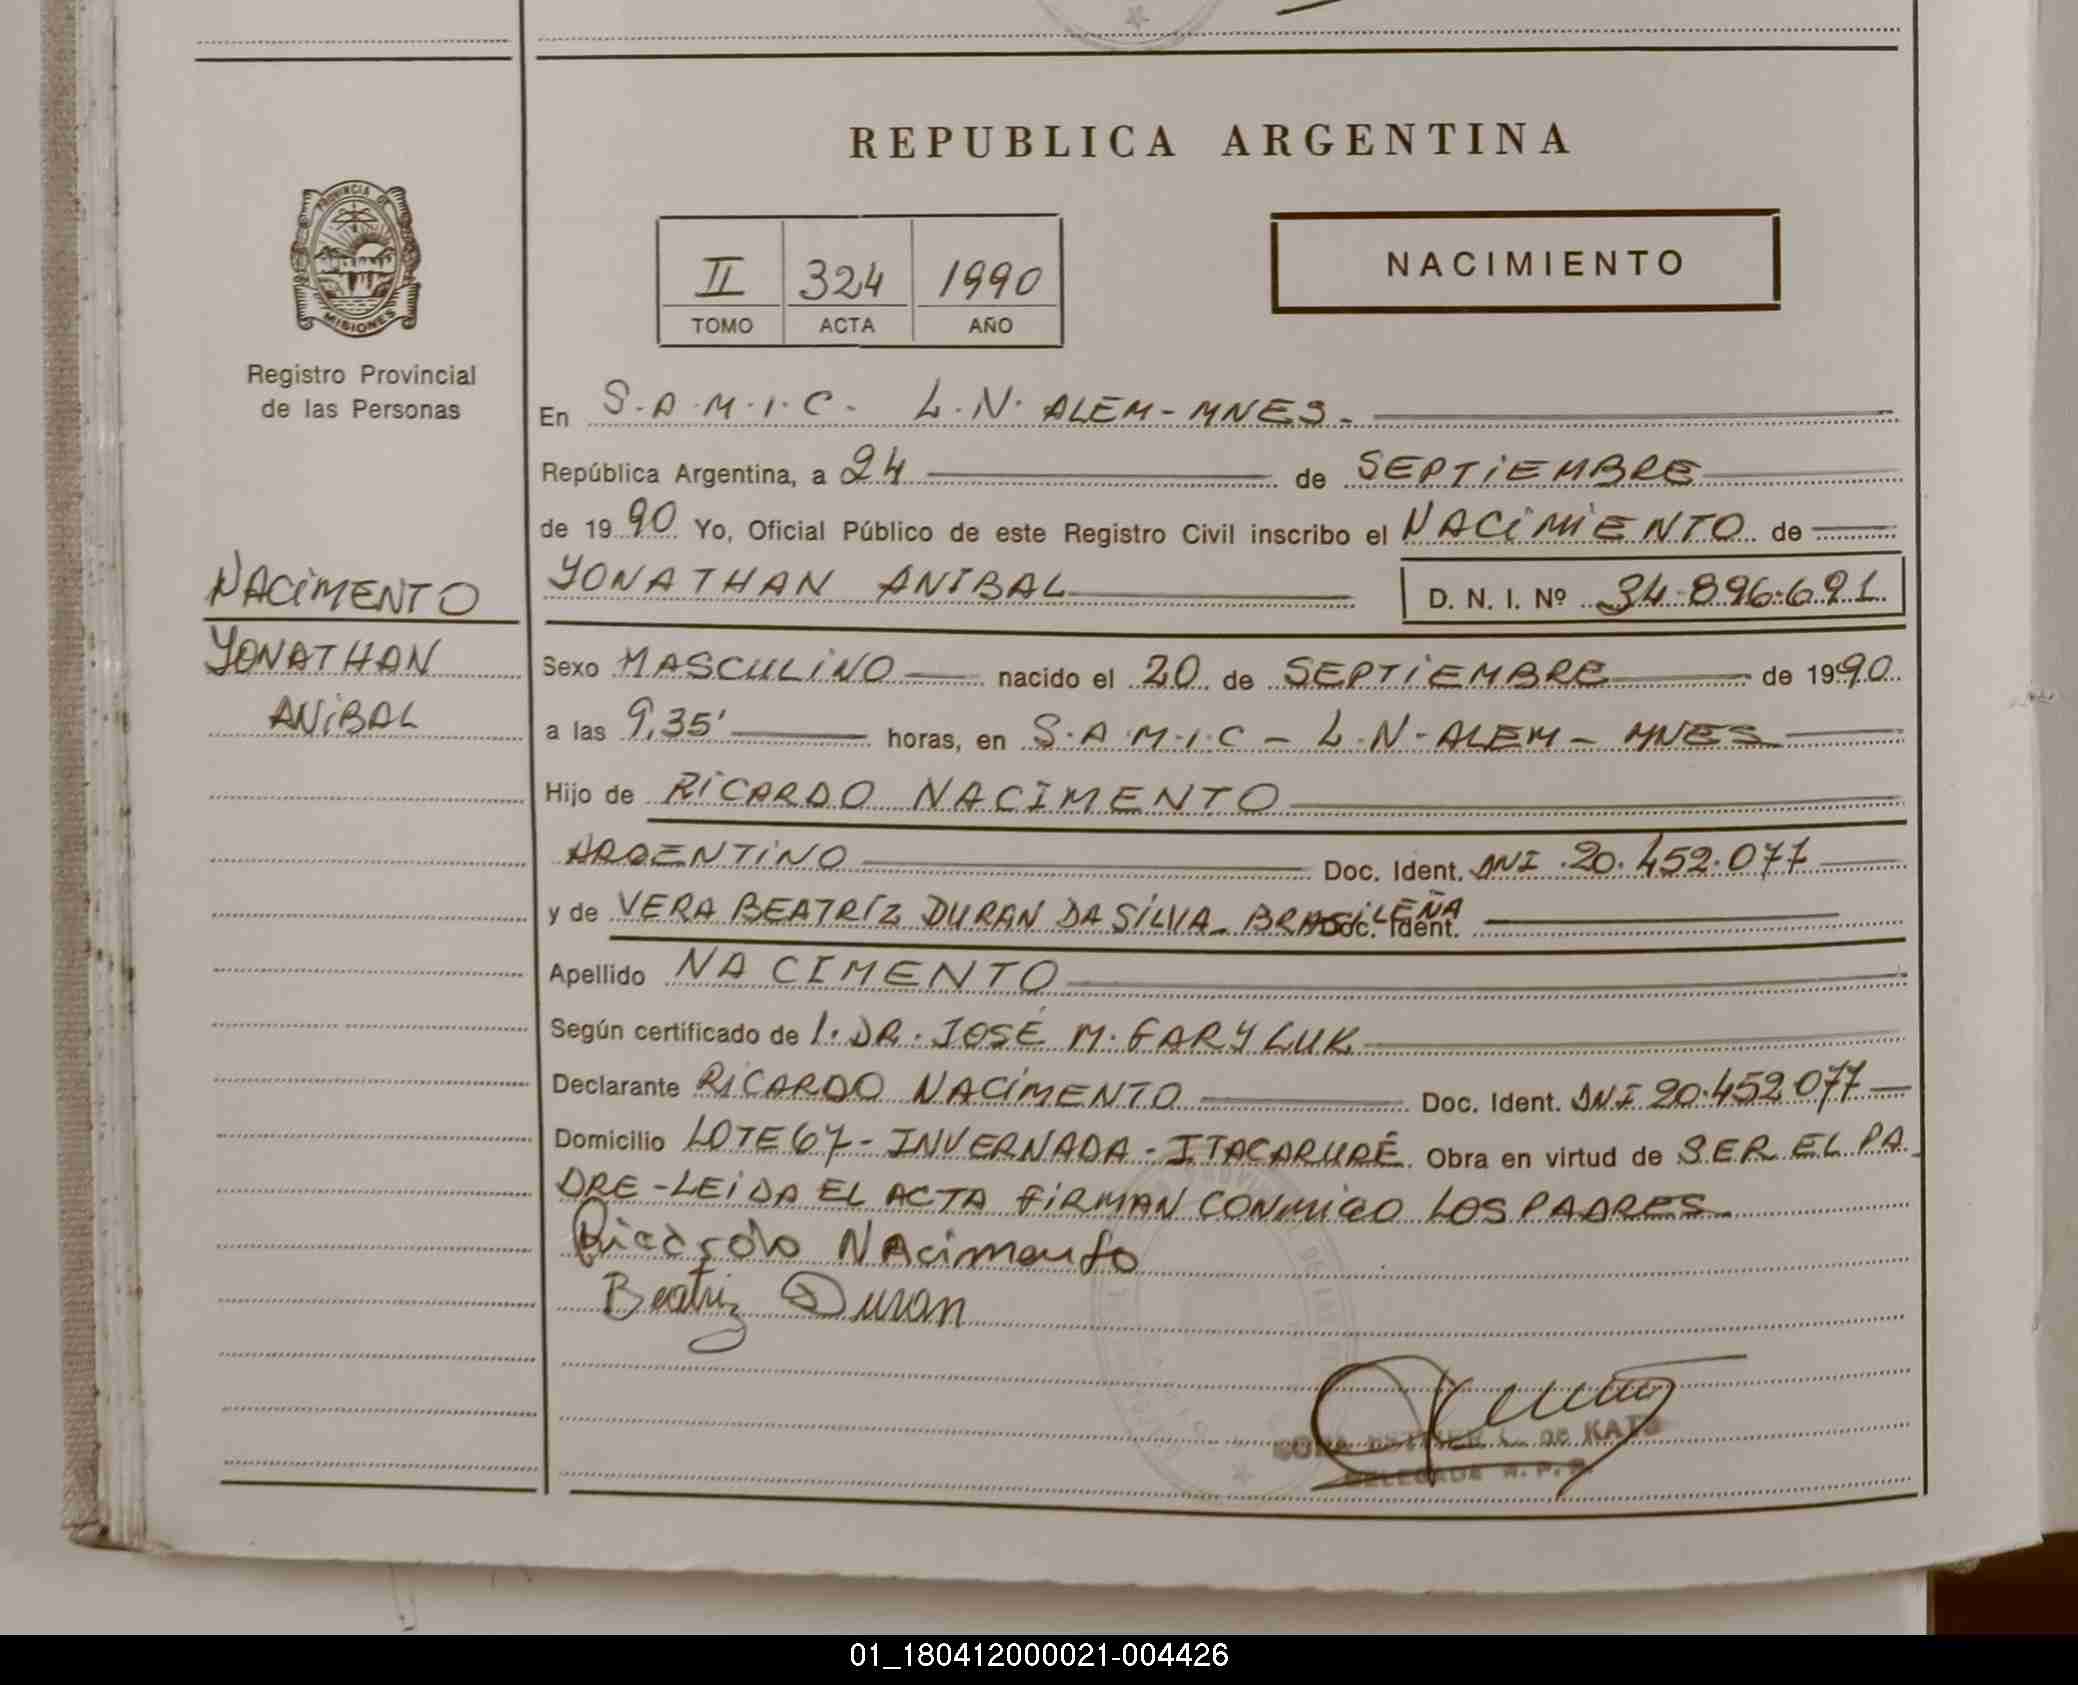 REPUBLICA ARGENTINA
PROVINCIA DE
MISIONES
Registro Provincial
de las Personas
II 324 1990
TOMO ACTA AÑO
NACIMIENTO
En S.A.M.I.C. L.N. ALEM - MNES.
República Argentina, a 24 de SEPTIEMBRE
de 1990 Yo, Oficial Público de este Registro Civil inscribo el NACIMIENTO de
NACIMENTO
YONATHAN ANIBAL D. N. I. Nº 34.896.691
YONATHAN
ANIBAL
Sexo MASCULINO nacido el 20 de SEPTIEMBRE de 1990
a las 9,35' horas, en S.A.M.I.C - L.N. ALEM - MNES
Hijo de RICARDO NACIMENTO
ARGENTINO Doc. Ident. DNI 20.452.077
y de VERA BEATRÍZ DURAN DA SILVA - BRASILEÑA Doc. Ident.
Apellido NACIMENTO
Según certificado de l. DR. JOSÉ M. GARYLUK
Declarante RICARDO NACIMENTO Doc. Ident. DNI 20.452.077
Domicilio LOTE 67 - INVERNADA - ITACARURÉ Obra en virtud de SER EL PA
DRE - LEIDA EL ACTA FIRMAN CONMIGO LOS PADRES
Ricardo Nacimento
Beatriz Duran
ESTHER L. DE KATZ
DELEGADA R. P. P.
01_180412000021-004426